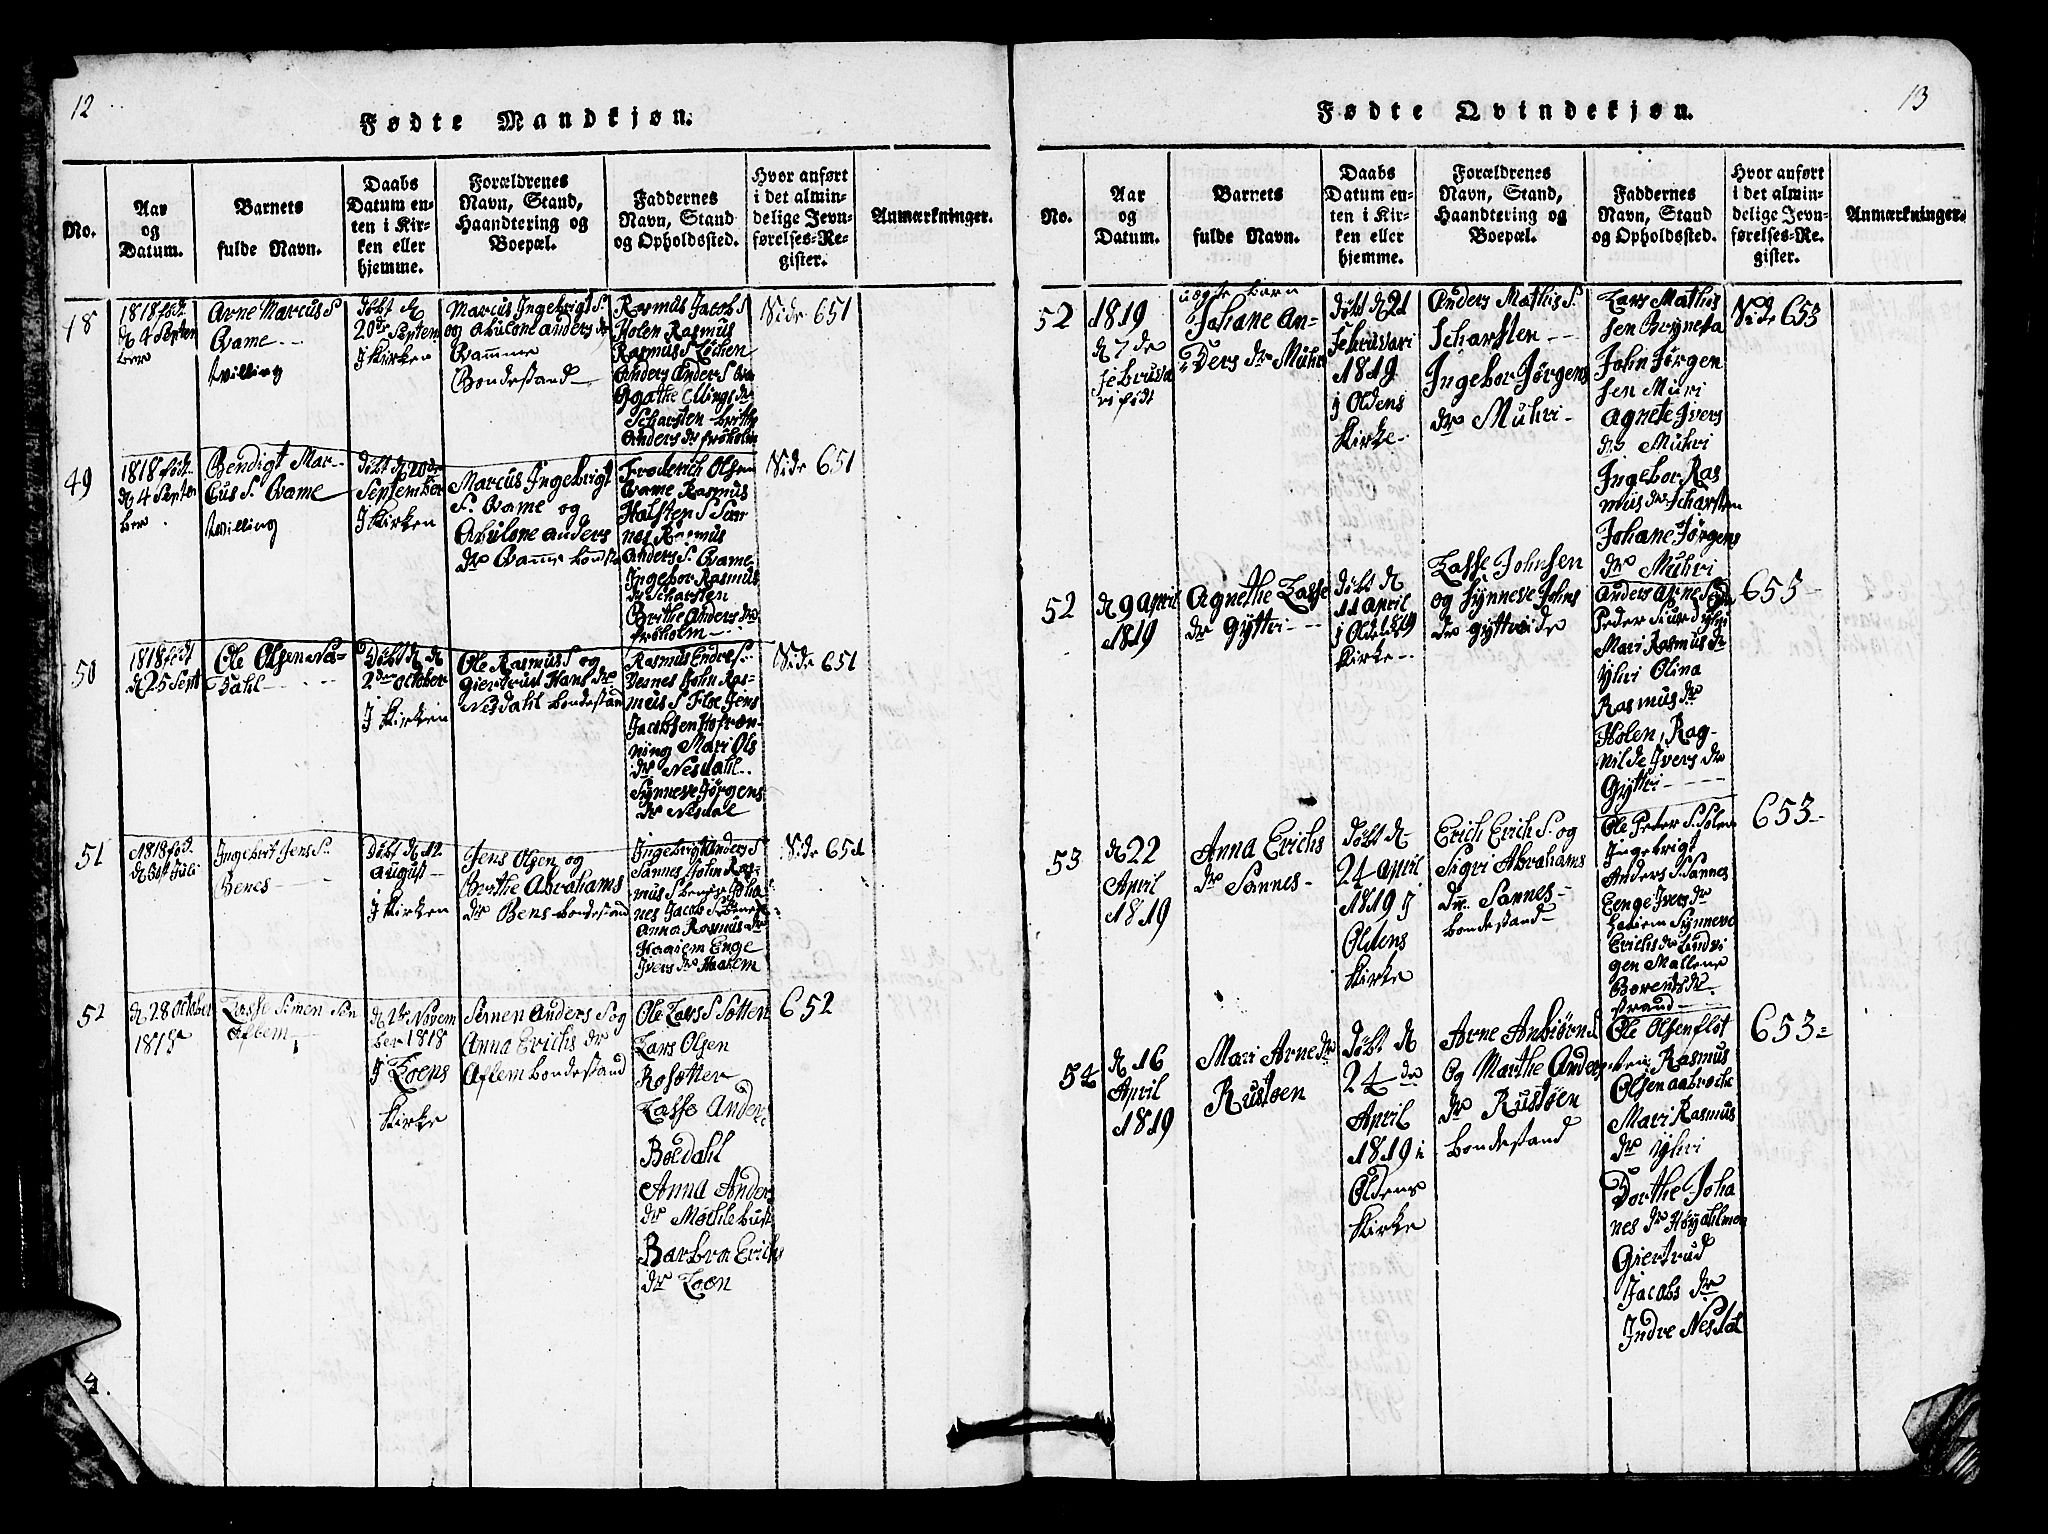 12
Fødte Mandkjøn.
No.
Aar
og
Datum.
Barnets
fulde Navn.
Daabs
Datum en-
ten i Kir-
ken eller
hjemme.
Forældrenes
Navn, Stand,
Haandtering og
Boepæl.
Faddernes
Navn, Stand
og Opholdssted.
Hvor anført
i det almin-
delige Jevn-
førelses-Re-
gister.
Anmærkninger.
48
1818 fød.
d 4 Septem
ber
Arne Marcus S
Qvame
tvilling
døbt d
20de Septem
J Kirken
Marcus Ingebrigt S.
og Abulone Anders dr
Qvamme
Bondestand
Rasmus Jacob S
Holen Rasmus
Rasmus S Løchen
Anders Anders S
Agathe Ellings dr
Scharsten Brithe
Anders dr frøholm
Side 651
49
1818 fød.
d 4 Septem
ber
Bendigt Mar-
cus S. Qvame
tvilling
døbt d 20de
September
J Kirken
Marcus Ingebrigt
S. Qvame og
Abulone Anders
dr Qvame bondesta
Frederich Olsen
Qvame Rasmus
Halsten S San
nes Rasmus
Anders S. Qvame
Ingebor Rasmus
dr Scharsten
Brithe Anders dr
frøholm
Side 651
50
1818 født
d 25 Sept
Ole Olsen Næs-
dahl
Døbt d
2den October
J Kirken
Ole Rasmus S og
Giertrud Hans dr
Nesdahl bondestand
Rasmus Endre S.
John Ras-
mus S Floe Jens
Jacobsen
ning Mari Ols
dr Nesdahl
Synneve Jørgens
dr Nesdal
Side 651
51
1818 fød.
Juli
Ingebrit Jens S.
Benes
Døbt d 12
August
J Kirken
Jens Olsen og
Brithe Abrahams
dr Bens bondestand
Ingebrigt Anders S
Sannes John Ras-
mus S benes Joha
nes Jacob S benes
Anna Rasmus dr
Haaiem Enge
Ivers dr Haaiem
Side 651
52
d 28 October
1818
Lasse Simen Søn
Aflem
d Novem
ber 1818
J Loens
Kirke
Simen Anders S og
Anna Erichs dr
Aflem bondestand
Ole Lars S Sotten
Lars Olsen
Rosætter
Lasse Anders
Bødahl
Anna Anders
dr Møchlebust
Barbra Erichs
dr Loen
652
13
Fødte Qvindekjøn.
No.
Aar
og
Datum.
Barnets
fulde Navn.
Daabs
Datum en-
ten i Kir-
ken eller
hjemme.
Forældrenes
Navn, Stand,
Haandtering og
Boepæl.
Faddernes
Navn, Stand
og Opholdssted.
Hvor anført
i det almin-
delige Jevn-
førelses-Re-
gister.
Anmærkninger.
52
1819
d 7 de
februa
ri født
uægte barn
Johane An-
ders dr Muhri
døbt d 21
februari
1819
j Oldens
Kirke
Anders Mathis S.
Scharsten
Ingebor Jørgens
dr Muhri
Lars Mathis
sen Brynesta
John Jørgen
sen Muri
Agnete Ivers
dr Muhri
Ingebor Ras
mus dr Scharsten
Johane Jørgens
dr Muhri
Side 653
52
d 9 April
1819
Agnethe Lasse
dr Gyttri
døbt d
11 April
j Oldens 1819
Kirke
Lasse Johnsen
og Synneve Johns
dr gyttri
Anders Arne S
Peder
Mari Rasmus dr
Yhri Olina
Rasmus dr
Holen, Rag-
nilde Ivers dr
Gyttri
655
53
d 22
April
1819
Anna Erichs
dr Sannes
døbt d
24 April
1819 j
Oldens
Kirke
Erich Erich S. og
Sigri Abrahams
dr. Sannes
bondestand
Ole Peder S.
Ingebrigt
Anders S Sannes
Eenge Iver dr
Synneve
Erichs dr
Mallene
Borends dr
strand
653
54
d 16
April
1819
Mari Arne dr
Rustøen
døbt d
24 de
April
1819 i
Oldens
Kirke
Arne Anbiørn S.
og Marthe Anders
dr Rustøen
bondestand
Ole Olsen fløt
Rasmus
Olsen Aabreche
Mari Rasmus
dr Yhri
Dorthe Joha
nes dr
Giertrud
Jacobs dr
Indre Nesdal
653